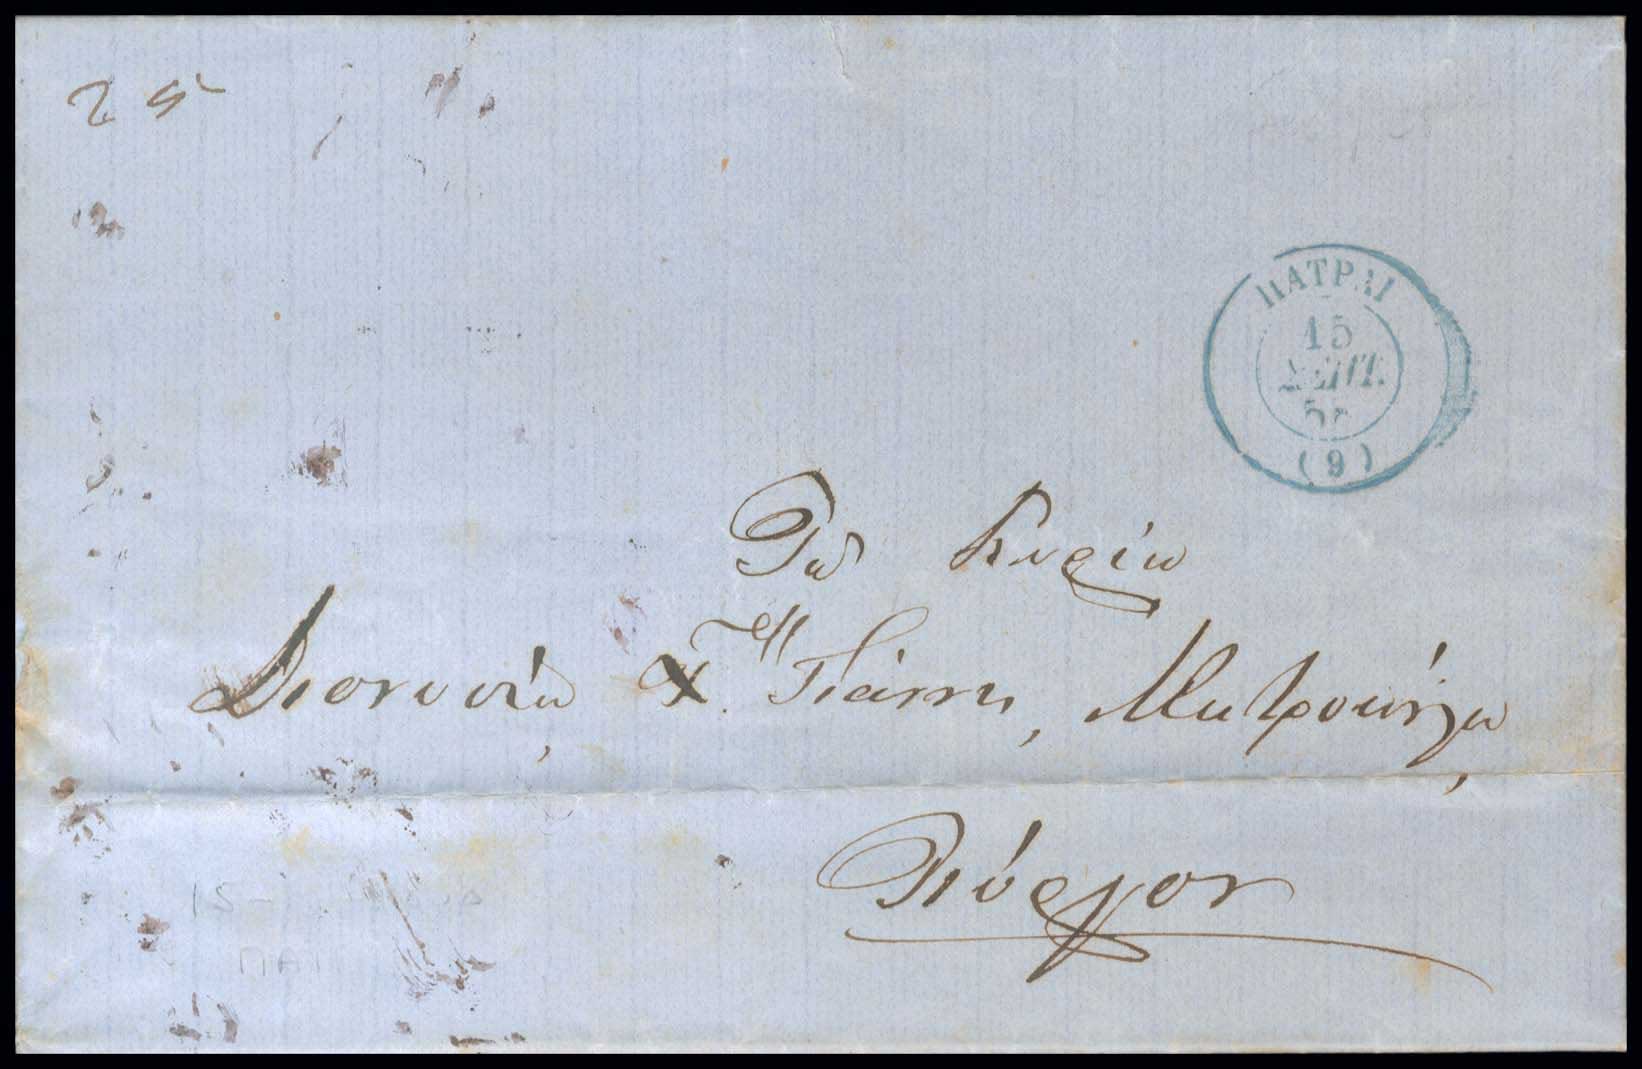 25
ΠΑΤΡΑΙ
15
ΣΕΠΤ.
(9)
Τῷ Κυρίῳ
Διονυσίῳ Χ. Γιάννη, Μητροπούλῳ,
Πύργον